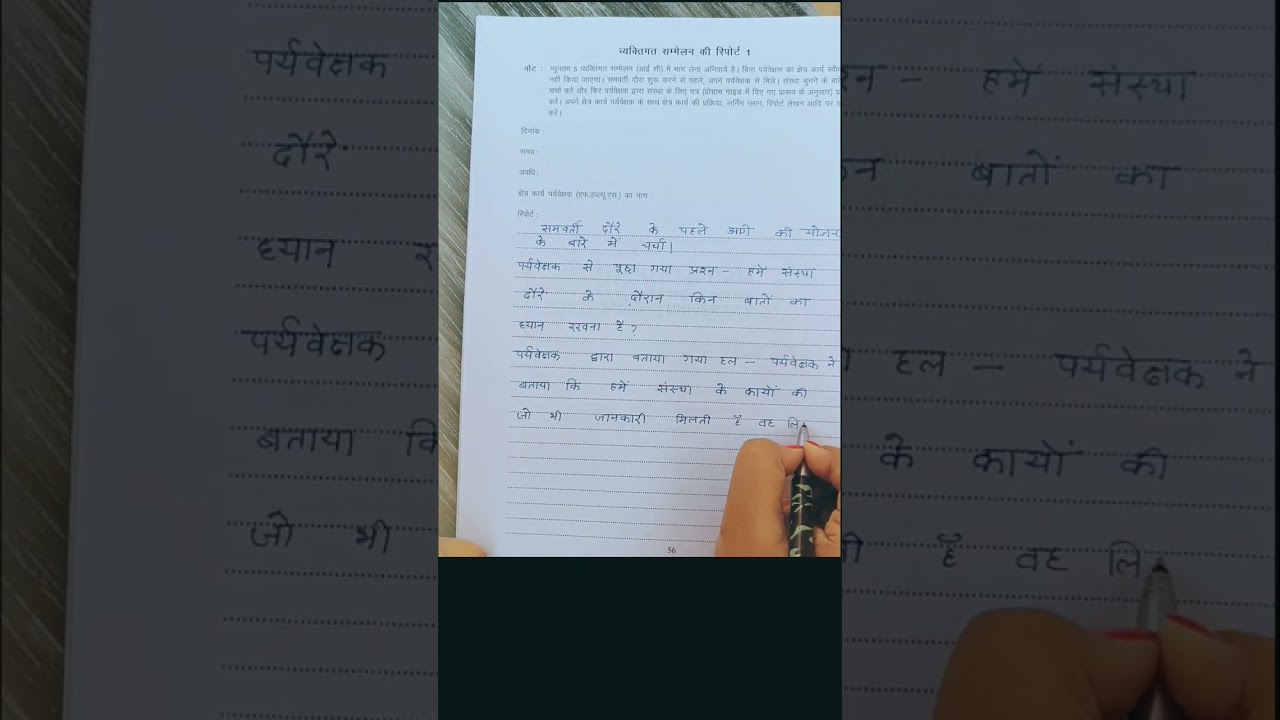 व्यक्तिगत सम्मेलन की रिपोर्ट 1
नोट : न्यूनतम 5 व्यक्तिगत सम्मेलन (आई सी) में भाग लेना अनिवार्य है। बिना पर्यवेक्षण का क्षेत्र कार्य
नहीं किया जाएगा। समवर्ती दौरा शुरू करने से पहले, अपने पर्यवेक्षक से मिलें। संस्था चुनने के
चर्चा करें और फिर पर्यवेक्षक द्वारा संस्था के लिए पत्र (प्रोग्राम गाइड में दिए गए प्रारूप के अनुसार)
करें। अपने क्षेत्र कार्य पर्यवेक्षक के साथ क्षेत्र कार्य की प्रक्रिया, लर्निंग प्लान, रिपोर्ट लेखन आदि पर
करें।
दिनांक :
समय :
अवधि :
क्षेत्र कार्य पर्यवेक्षक (एफ.डब्ल्यू.एस.) का नाम :
रिपोर्ट :
समवर्ती दौरे के पहले आगे की योजना
के बारे में चर्चा।
पर्यवेक्षक से पूछा गया प्रश्न – हमें संस्था
दौरे के दौरान किन बातों का
ध्यान रखना है?
पर्यवेक्षक द्वारा बताया गया हल – पर्यवेक्षक ने
बताया कि हमें संस्था के कार्यों की
जो भी जानकारी मिलती है वह लि
56